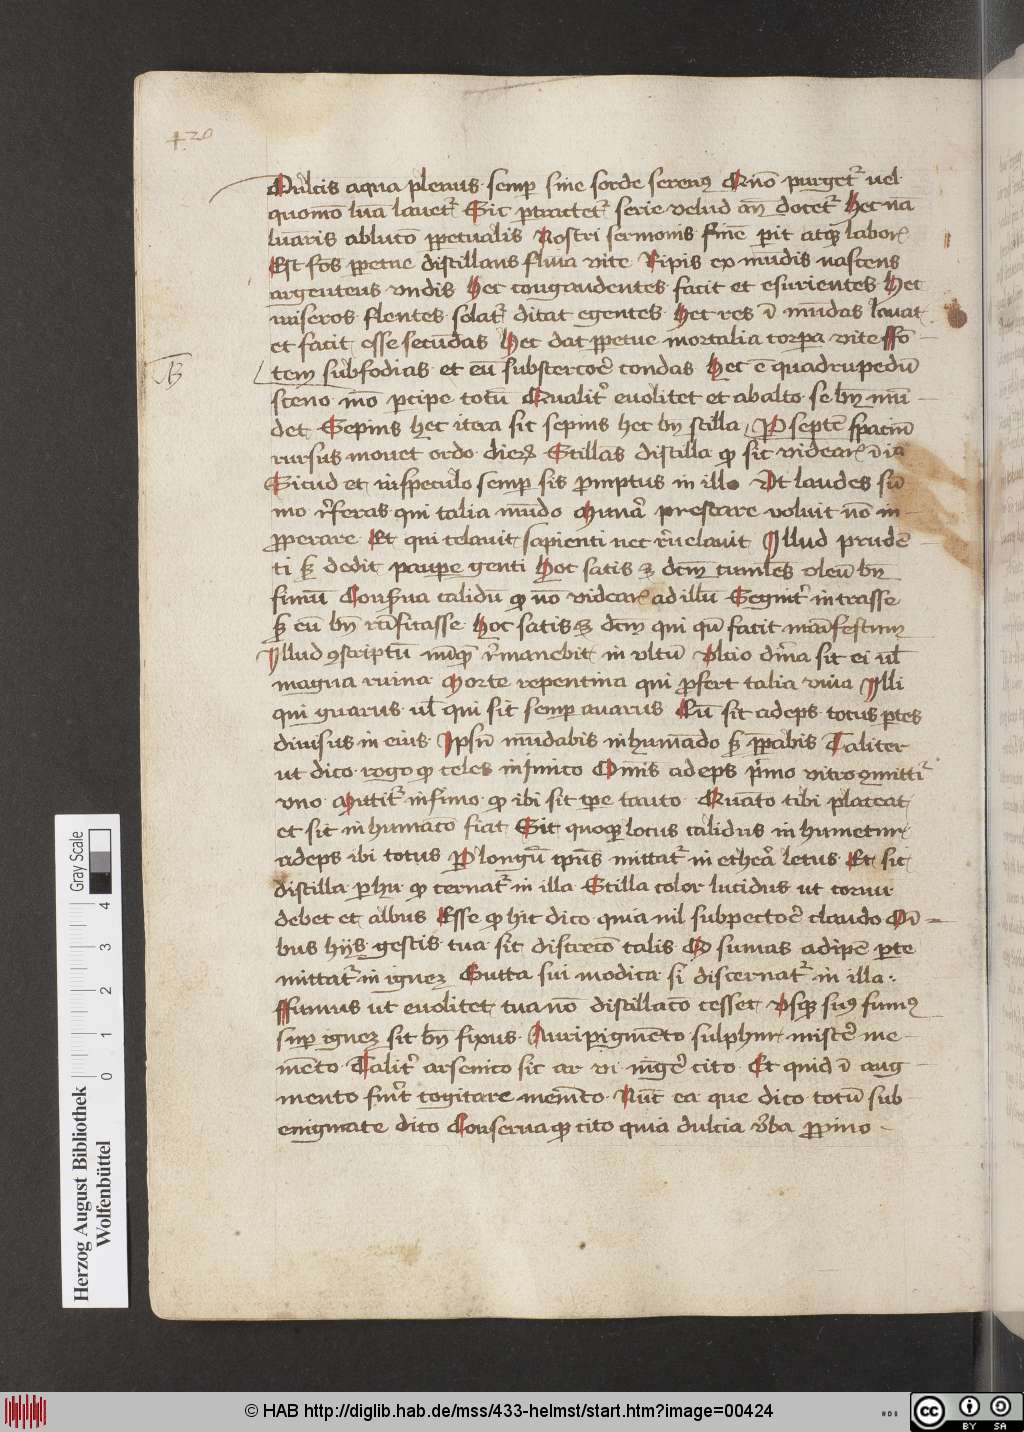 420
Dulcis aqua plenus semꝑ sine sorde serenꝯ Quō purget᷑ vel
quomō lua lauet᷑ Sic ꝑtractet᷑ serie velud an̄ docet᷑ Hec nā
luaris ablucō ꝑpetualis Nostri sermonis sine ꝑit atqꝫ labor
Est fōs ꝑpetue distillans fluia vite Ripis ex mūdis nascens
argenteus vndis Hec congaudentes facit et esurientes Hec
miseros flentes solat᷑ ditat egentes Hec res ī mūdas lauat
et facit esse secūdas Hec dat ꝑpetue mortalia corpa vite ffō
B
tem subfodias et eū substercor̄ condas Hec ē quadrupedū
sceno mō ꝑcipe totū Qualit᷑ euolitet et abalto se bn̄ mū
det Sepius hec itera sic sepius hec bn̄ stilla P septē spaciū
rursus mouet ordo dieꝝ Stillās distilla qꝫ sic videar
Sicud et in speculo semꝑ sis ꝓmptus in illo Ut laudes sū
mo r̄feras qui talia mūdo prestare voluit nō in
ꝓperare Et qui celauit sapienti nec r̄uelauit Illud prudē
ti sꝫ dedit paupe genti Hoc satis ē dcm̄ cumles oleū bn̄
fimū Conẜua calidū qꝫ nō videar ad illū Segnit᷑ intrasse
sꝫ eū bn̄ Hoc satis ē dcm̄ qui qū facit manifestum
Illud ꝯscriptū nūqꝫ r̄manebit in vltū Ulcio d̄ina sit ei ul̄
magna ruina Morte repentina qui ꝓfert talia viua Illi
qui gnarus ul̄ qui sit semꝑ auarus Cū sit adeps totus ꝑtes
diuisus in eius Ipsū mūdabis inhumādo sꝫ ꝓbabis Taliter
ut dico rogo qꝫ celes inimico Omīs adeps p̄mo vitro ꝯmitti᷑
vno Mittit᷑ in fimo qꝫ ibi sit tpe tanto Quāto tibi placeat
et sit in humatō fiat Sit quoqꝫ locus calidus in humetur
adeps ibi totus P longū tp̄us mittat᷑ in etheā letus Et sic
distilla ꝑ hīr qꝫ cernat᷑ in illa Stilla color lucidus ut corui
debet et albus Esse qꝫ hic dico quia nil subpector̄ claudo Oī
bus hijs gestis tua sit discrecō talis Q sumas adipē ꝑte
mittat᷑ in ignez Gutta sui modica si discernat᷑ in illa
ffumus ut euolitet tua nō distillacō cesset Usqꝫ siꝯ fumꝯ
suꝑ ignez sit bn̄ fixus Auripigmēto sulphur misc̄e me
mēto Talit᷑ arsenico sic ar vi mḡe cito Et quid ī aug
mento fiu᷑t cogitare memēto Nūc ea que dico totū sub
enigmate dico Conseruaqꝫ cito quia dulcia v̄ba ꝓpino
Herzog August Bibliothek
Wolfenbüttel
Gray Scale
0 1 2 3 4
© HAB http://diglib.hab.de/mss/433-helmst/start.htm?image=00424
cc BY SA